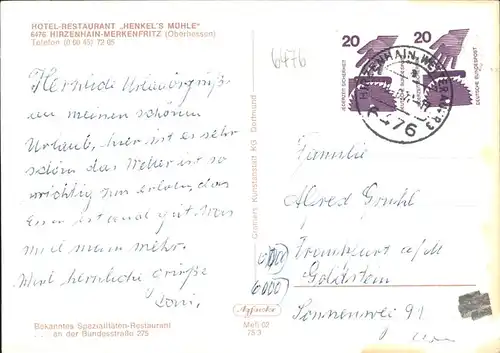 HOTEL-RESTAURANT „HENKEL'S MÜHLE"
6476 HIRZENHAIN-MERKENFRITZ (Oberhessen)
Telefon (0 60 45) 72 05
Herzliche Urlaubsgrüße
aus meinem schönen
Urlaub, hier ist es sehr
schön das Wetter ist so
richtig zum erholen, das
Essen ist auch gut. Was
will man mehr.
Viel herzliche Grüße
Bekanntes Spezialitäten-Restaurant
an der Bundesstraße 275
Cramers Kunstanstalt KG Dortmund
Meh 02
6476
20
JEDERZEIT SICHERHEIT
DEUTSCHE BUNDESPOST
20
DEUTSCHE BUNDESPOST
6476
Familie
Alfred
Frankfurt a/M
Goldstein
Sonnenweg 91
6000